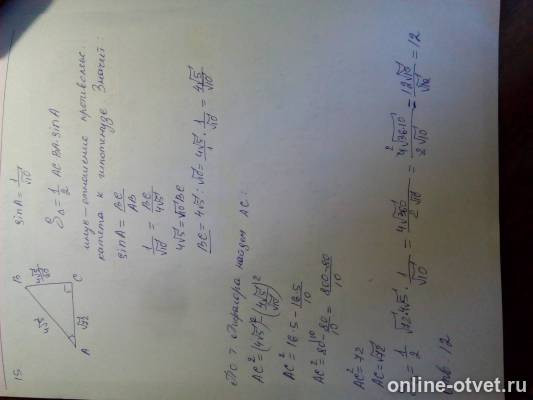 15
B
4√5
4√5/√10
A
√72
C
sin A = 1/√10
S△ = 1/2 AC·BA·sin A
синус - отношение противолеж.
катета к гипотенузе. Значит:
sin A = BC/AB
1/√10 = BC/4√5
4√5 = √10 BC
BC = 4√5 : √10 = 4√5/1 · 1/√10 = 4√5/√10
По т. Пифагора найдем AC:
AC² = (4√5)² - (4√5/√10)²
AC² = 16·5 - 16·5/10
AC² = 80 - 80/10 = 800-80/10
AC² = 72
AC = √72
= 1/2 √72·4√5 · 1/√10 = 4√360/2√10 = 4√36·10/2√10 = 12√10/√10 = 12
12
online-otvet.ru